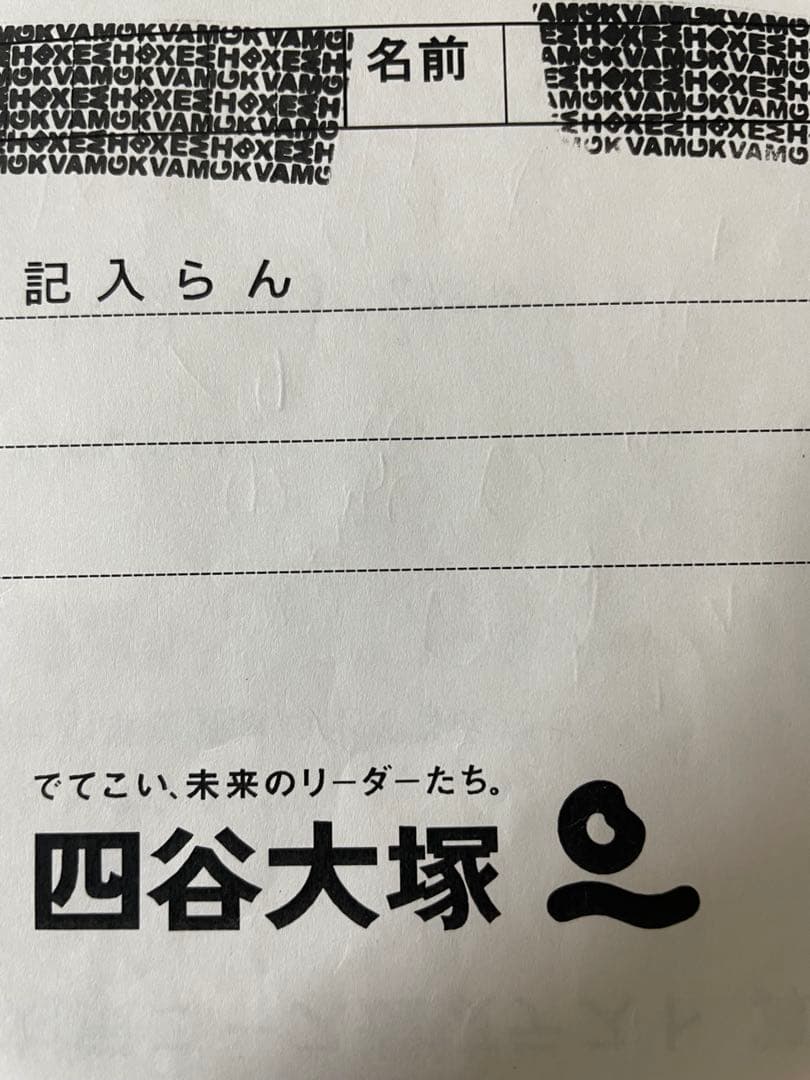 名前
記入らん
でてこい、未来のリーダーたち。
四谷大塚